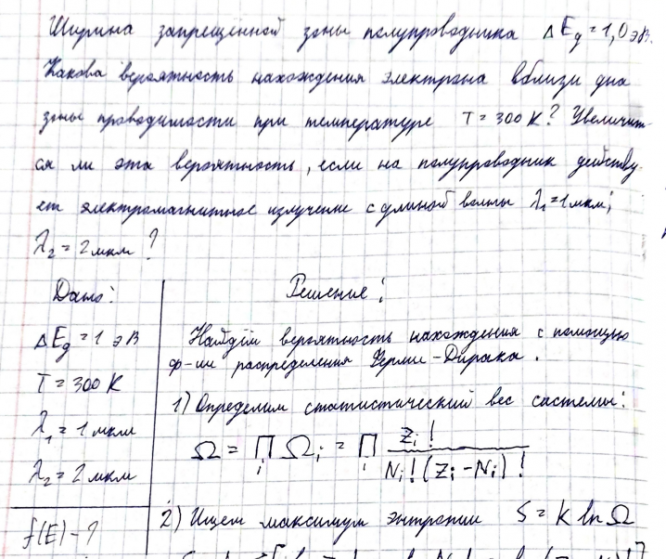 Ширина запрещённой зоны полупроводника ΔEg = 1,0 эВ.
Какова вероятность нахождения электрона вблизи дна
зоны проводимости при температуре T = 300 K? Увеличит
ся ли эта вероятность, если на полупроводник действу
ет электромагнитное излучение с длиной волны λ₁ = 1 мкм;
λ₂ = 2 мкм?
Дано:
ΔEg = 1 эВ
T = 300 K
λ₁ = 1 мкм
λ₂ = 2 мкм
f(E) - ?
Решение:
Найдём вероятность нахождения с помощью
ф-ии распределения Ферми-Дирака.
1) Определим статистический вес системы:
Ω = ∏i Ωi = ∏i Zi! / Ni!(Zi - Ni)!
2) Ищем максимум энтропии S = k ln Ω